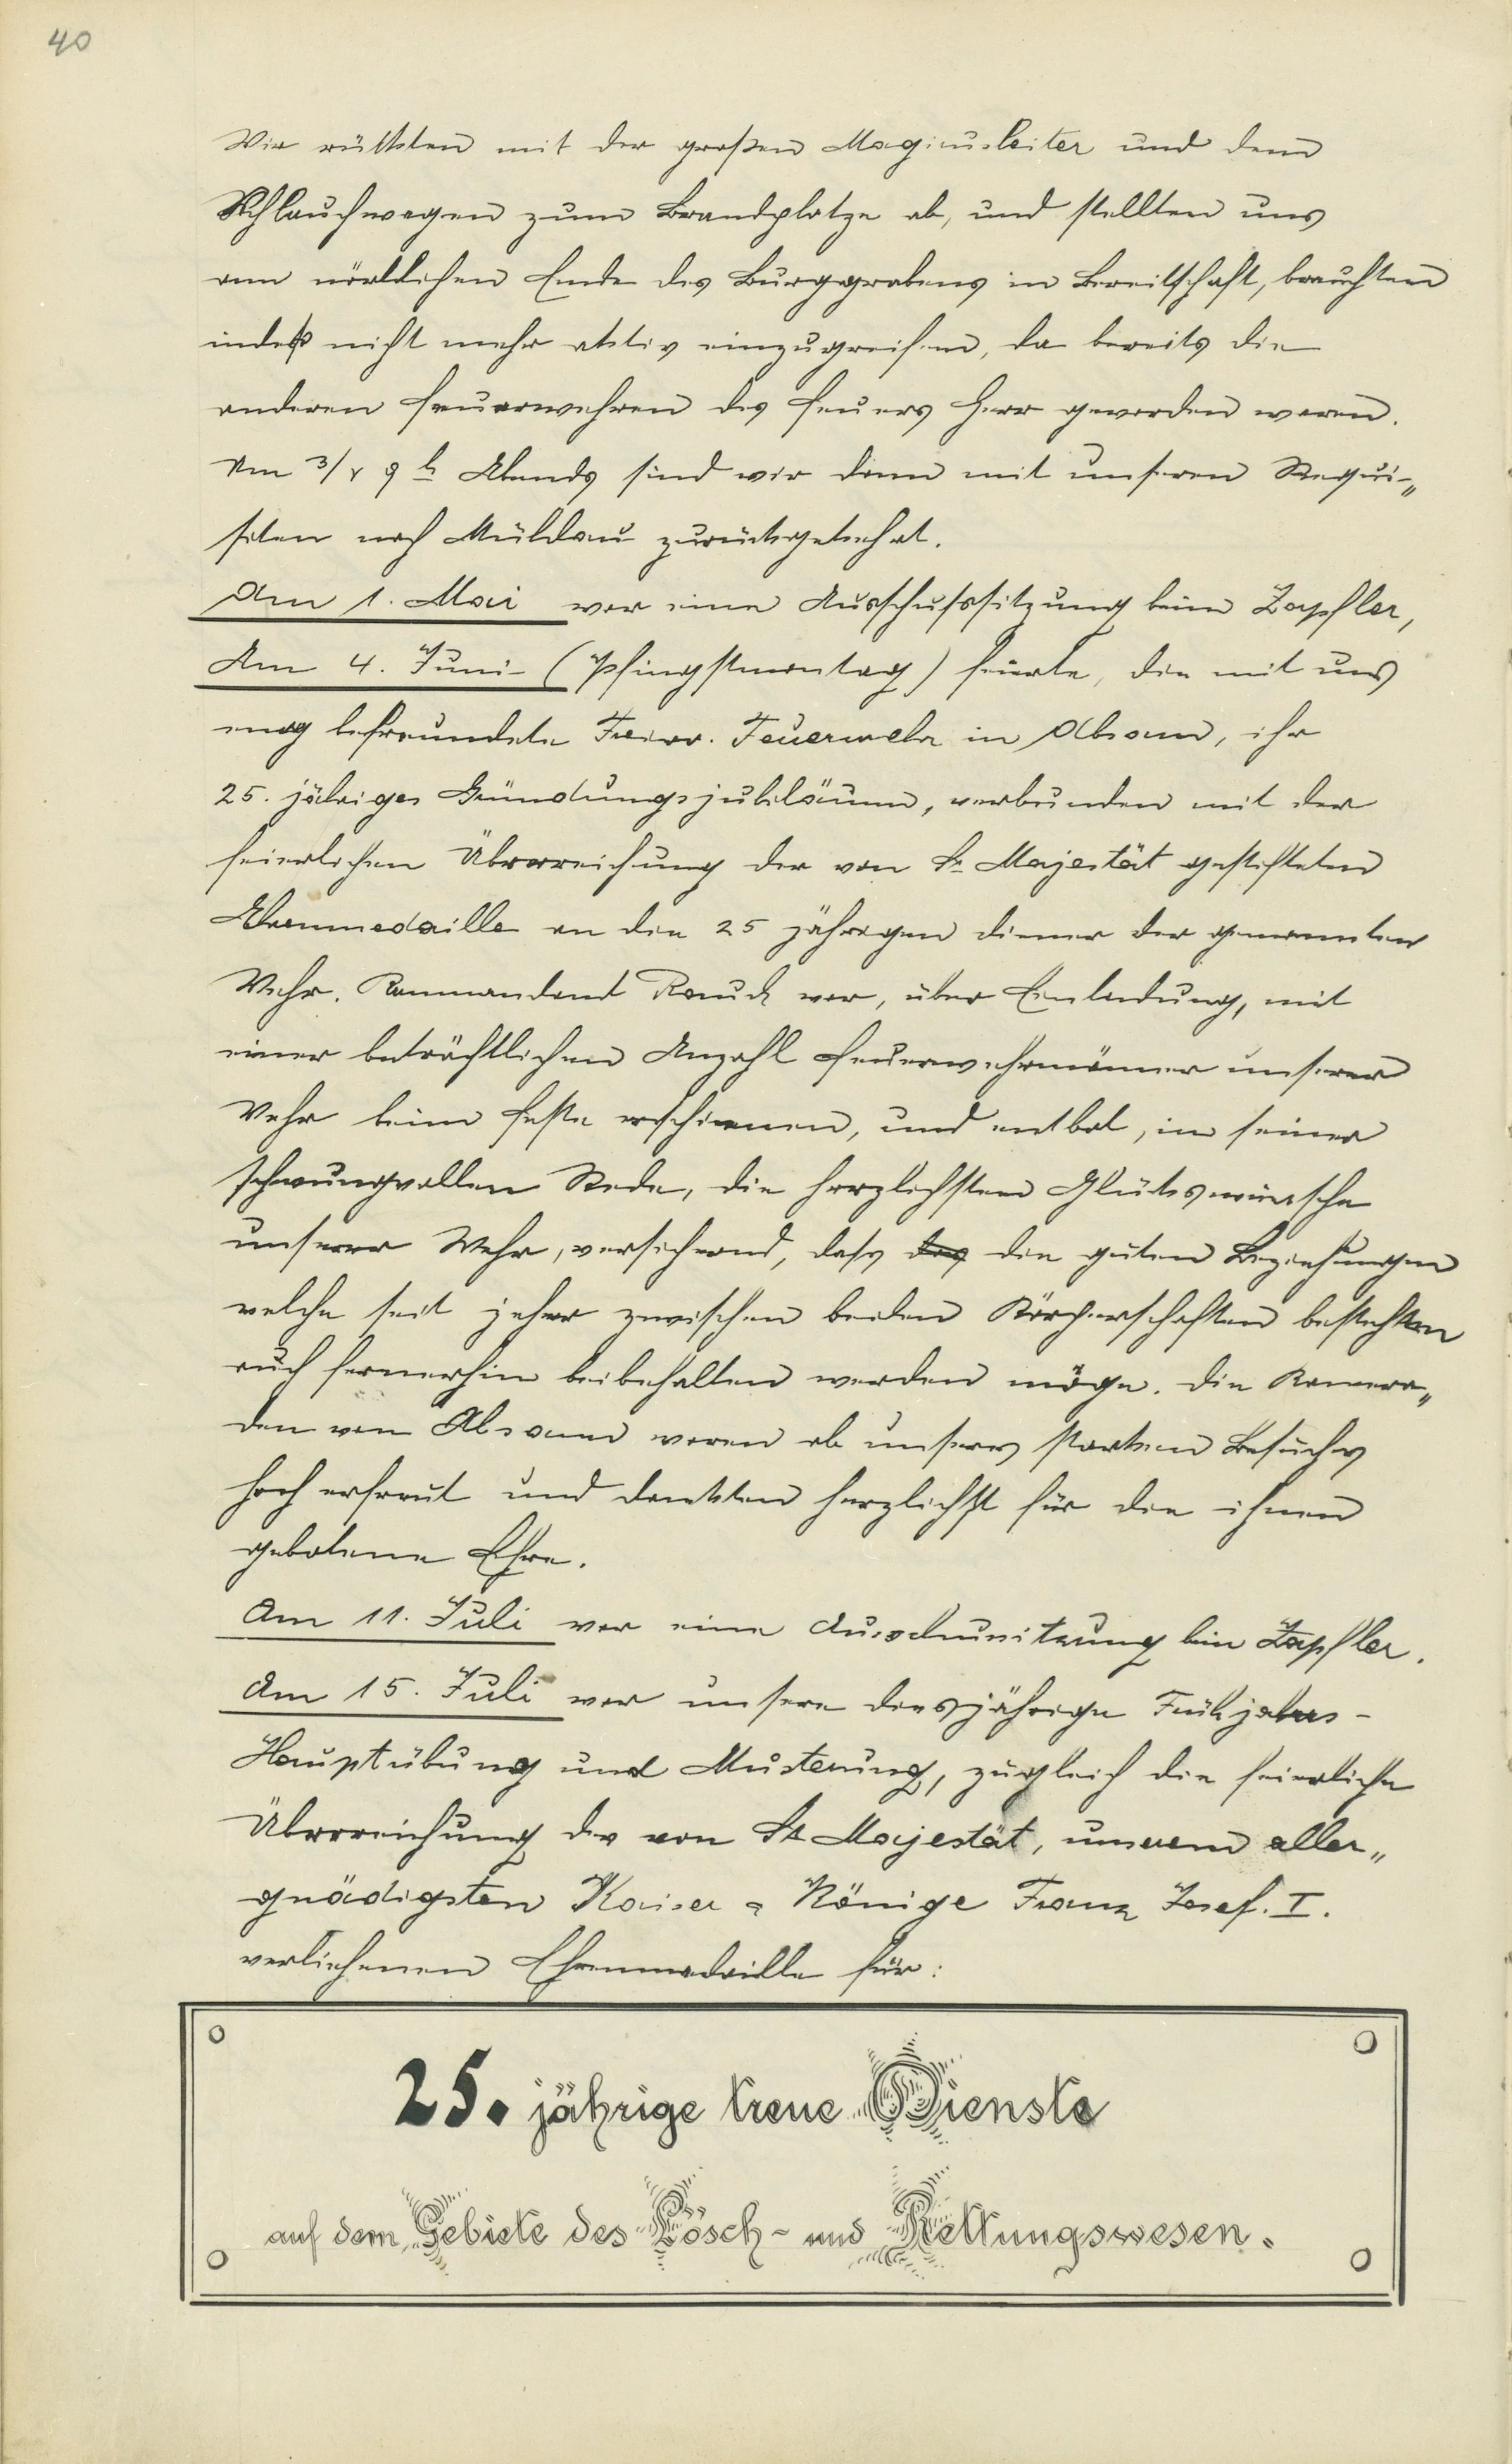 40
Wir rückten mit der großen Magirusleiter und dem
Schlauchwagen zum Brandplatze ab, und stellten uns
am nördlichen Ende des Burggrabens in Bereitschaft, brauchten
indeß nicht mehr aktiv einzugreifen, da bereits die
anderen Feuerwehren des Feuers Herr geworden waren.
Um 3/4 9 h Abends sind wir dann mit unseren Requi-„
siten nach zurückgekehrt.
Am 1. Mai war eine Ausschußsitzung beim Zapfler,
Am 4. Juni (Pfingstmontag) feierte, die mit uns
eng befreundete Freiw. Feuerwehr in Absam, ihr
25. jähriges Gründungsjubiläum, verbunden mit der
feierlichen Überreichung der von Sr Majestät gestifteten
Ehrenmedaille an die 25 jährigen diener der genannten
Wehr. Kommandant Rauch war, über Einladung, mit
einer beträchtlichen Anzahl Feuerwehrmänner unserer
Wehr beim Feste erschienen, und entbot, in seiner
schwungvollen Rede, die herzlichsten Glückswünsche
unserer Wehr, versichernd, dass das die guten Beziehungen
welche seit jeher zwischen beiden Körperschaften bestehen
auch fernerhin beibehalten werden möge. Die Kamera„
den von Absam waren ob unseres starken Besuches
hoch erfreut und dankten herzlichst für die ihnen
gebotene Ehre.
Am 11. Juli war eine Ausschussitzung beim Zapfler.
Am 15. Juli war unsere diesjährige Frühjahrs-
Hauptübung und Musterung, zugleich die feierliche
Überreichung der von Sr Majestät, unserem aller„
gnädigsten Kaiser u Könige Franz Josef. I.
verliehenen Ehrenmedaille für:
25. jährige treue Dienste
auf dem Gebiete des Lösch- und Rettungswesen.